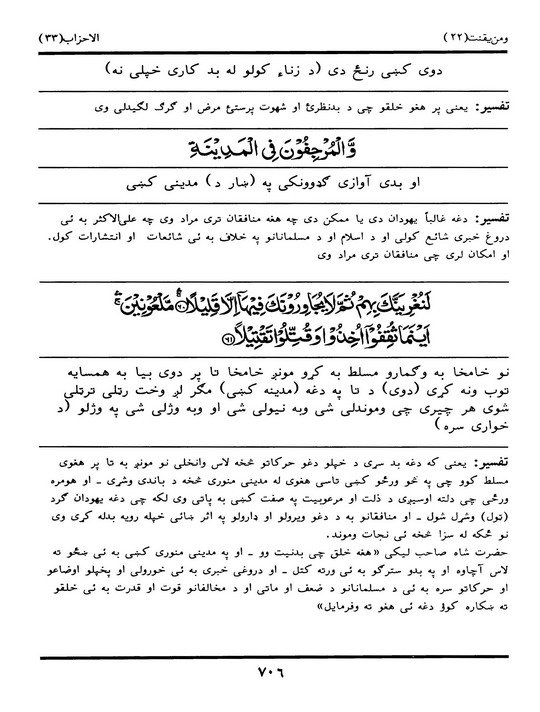 ومن یقنت(۲۲) الاحزاب(۳۳)
دوی کښی رنځ دی (د زناء کولو له بد کاری خپلی نه)
تفسیر: یعنی پر هغو خلقو چی د بدنظرئ او شهوت پرستئ مرض او گرگ لگیدلی وی
وَّالْمُرْجِفُوْنَ فِی الْمَدِیْنَةِ
او بدی آوازی گډوونکی په (ښار د) مدینی کښی
تفسیر: دغه غالباً یهودان دی یا ممکن دی چه هغه منافقان تری مراد وی چه علی الاکثر به ئی
دروغ خبری شائع کولی او د اسلام او د مسلمانانو په خلاف به ئی شائعات او انتشارات کول.
او امکان لری چی منافقان تری مراد وی
لَنُغْرِیَنَّكَ بِهِمْ ثُمَّ لَا یُجَاوِرُوْنَكَ فِیْهَاۤ اِلَّا قَلِیْلًا ۛ۶۰ مَّلْعُوْنِیْنَ ۛ
اَیْنَمَا ثُقِفُوْۤا اُخِذُوْا وَقُتِّلُوْا تَقْتِیْلًا ۶۱
نو خامخا به وگمارو مسلط به کړو مونږ خامخا تا پر دوی بیا به همسایه
توب ونه کړی (دوی) د تا په دغه (مدینه کښی) مگر لږ وخت رټلی ترټلی
شوی هر چیری چی وموندلی شی وبه نیولی شی او وبه وژلی شی په وژلو (د
خواری سره)
تفسیر: یعنی که دغه بد سری د خپلو دغو حرکاتو څخه لاس وانخلی نو مونږ به تا پر هغوی
مسلط کوو چی په څو ورځو کښی تاسی هغوی له مدینی منوری څخه د باندی وشړئ - او هومره
ورځی چی دلته اوسیږی د ذلت او مرعوبیت په صفت کښی به پاتی وی لکه چی دغه یهودیان گرد
(ټول) وشړل شول - او منافقانو به د دغو ویرولو او ډارولو په اثر ښائی خپله رویه بدله کړی وی
نو ځکه له سزا څخه ئی نجات وموند.
حضرت شاه صاحب لیکی «هغه خلق چی بدنیت وو - او په مدینی منوری کښی به ئی ښځو ته
لاس آچاوه او په بدو سترگو به ئی ورته کتل - او دروغی خبری به ئی خورولی او پخپلو اوضاعو
او حرکاتو سره به ئی د مسلمانانو د ضعف او ماتی او د مخالفانو قوت او قدرت به ئی خلقو
ته ښکاره کوؤ دغه ئی هغو ته وفرمایل»
۷۰۶